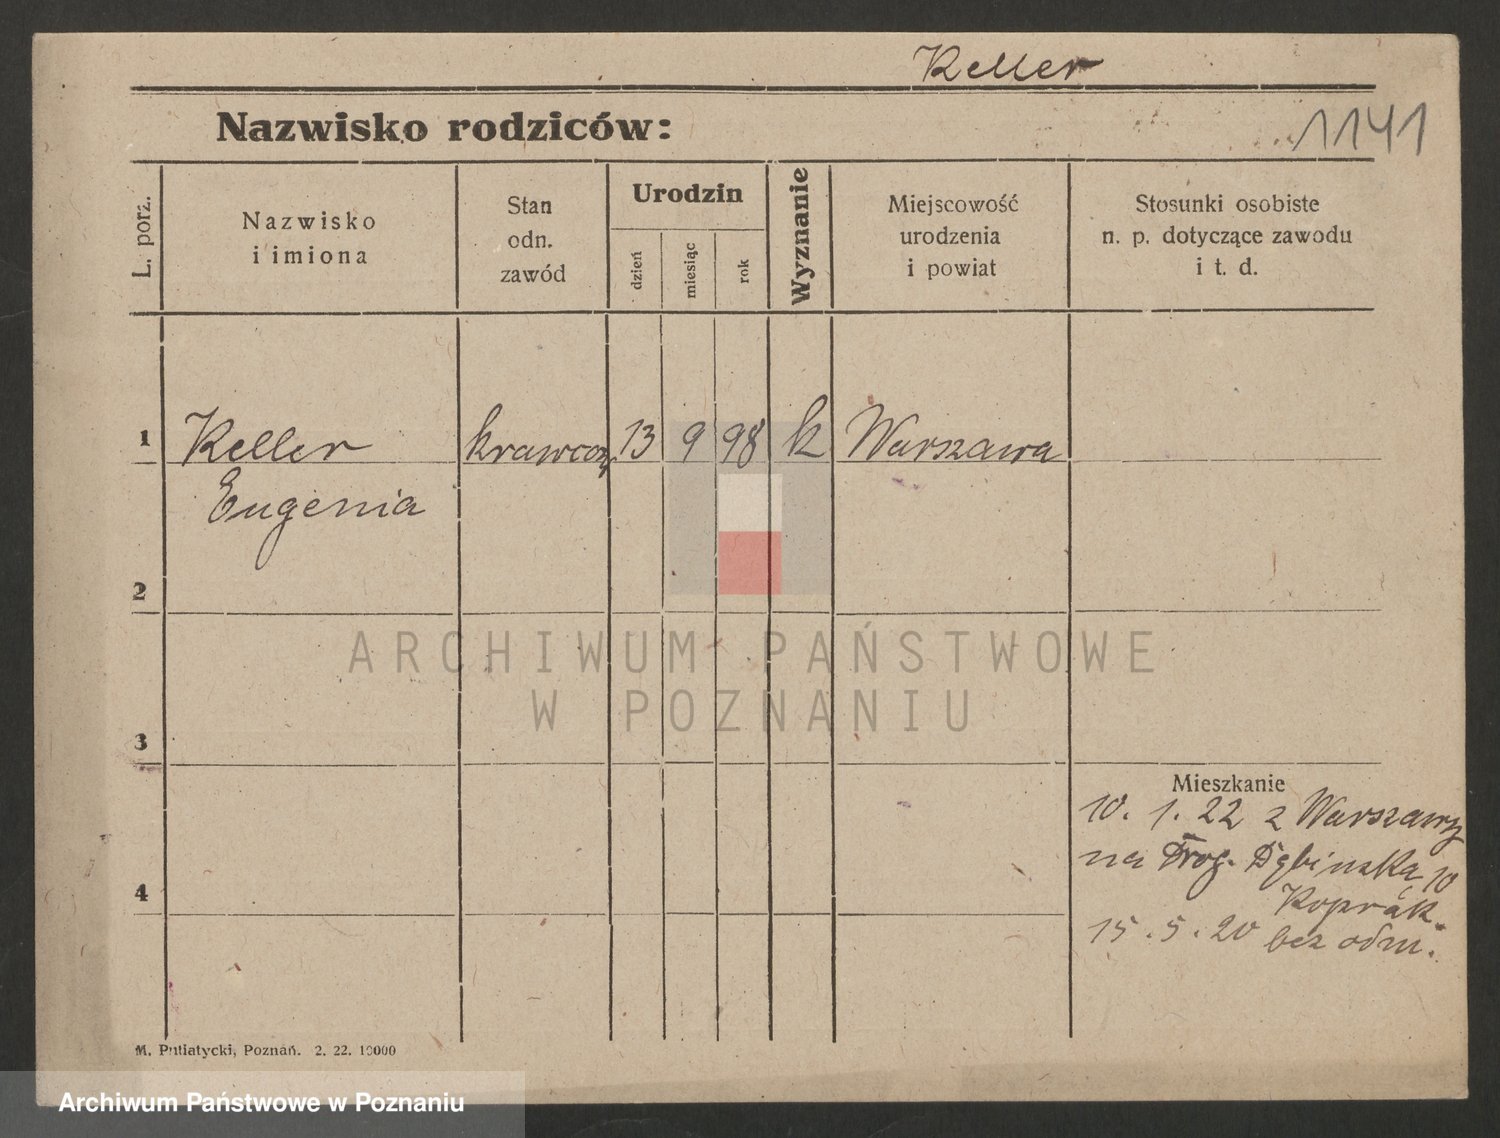 Keller
Nazwisko rodziców:
1141
L. porz.
Nazwisko
i imiona
Stan
odn.
zawód
Urodzin
dzień
miesiąc
rok
Wyznanie
Miejscowość
urodzenia
i powiat
Stosunki osobiste
n. p. dotyczące zawodu
i t. d.
1
Keller
krawcowa
13
9
98
k
Warszawa
Eugenia
2
ARCHIWUM PAŃSTWOWE
W POZNANIU
3
Mieszkanie
10. 1. 22 z Warszawy
na Drog. Dębinska 10
15. 5. 20 bez odm.
4
M. Putiatycki, Poznań. 2. 22. 10000
Archiwum Państwowe w Poznaniu